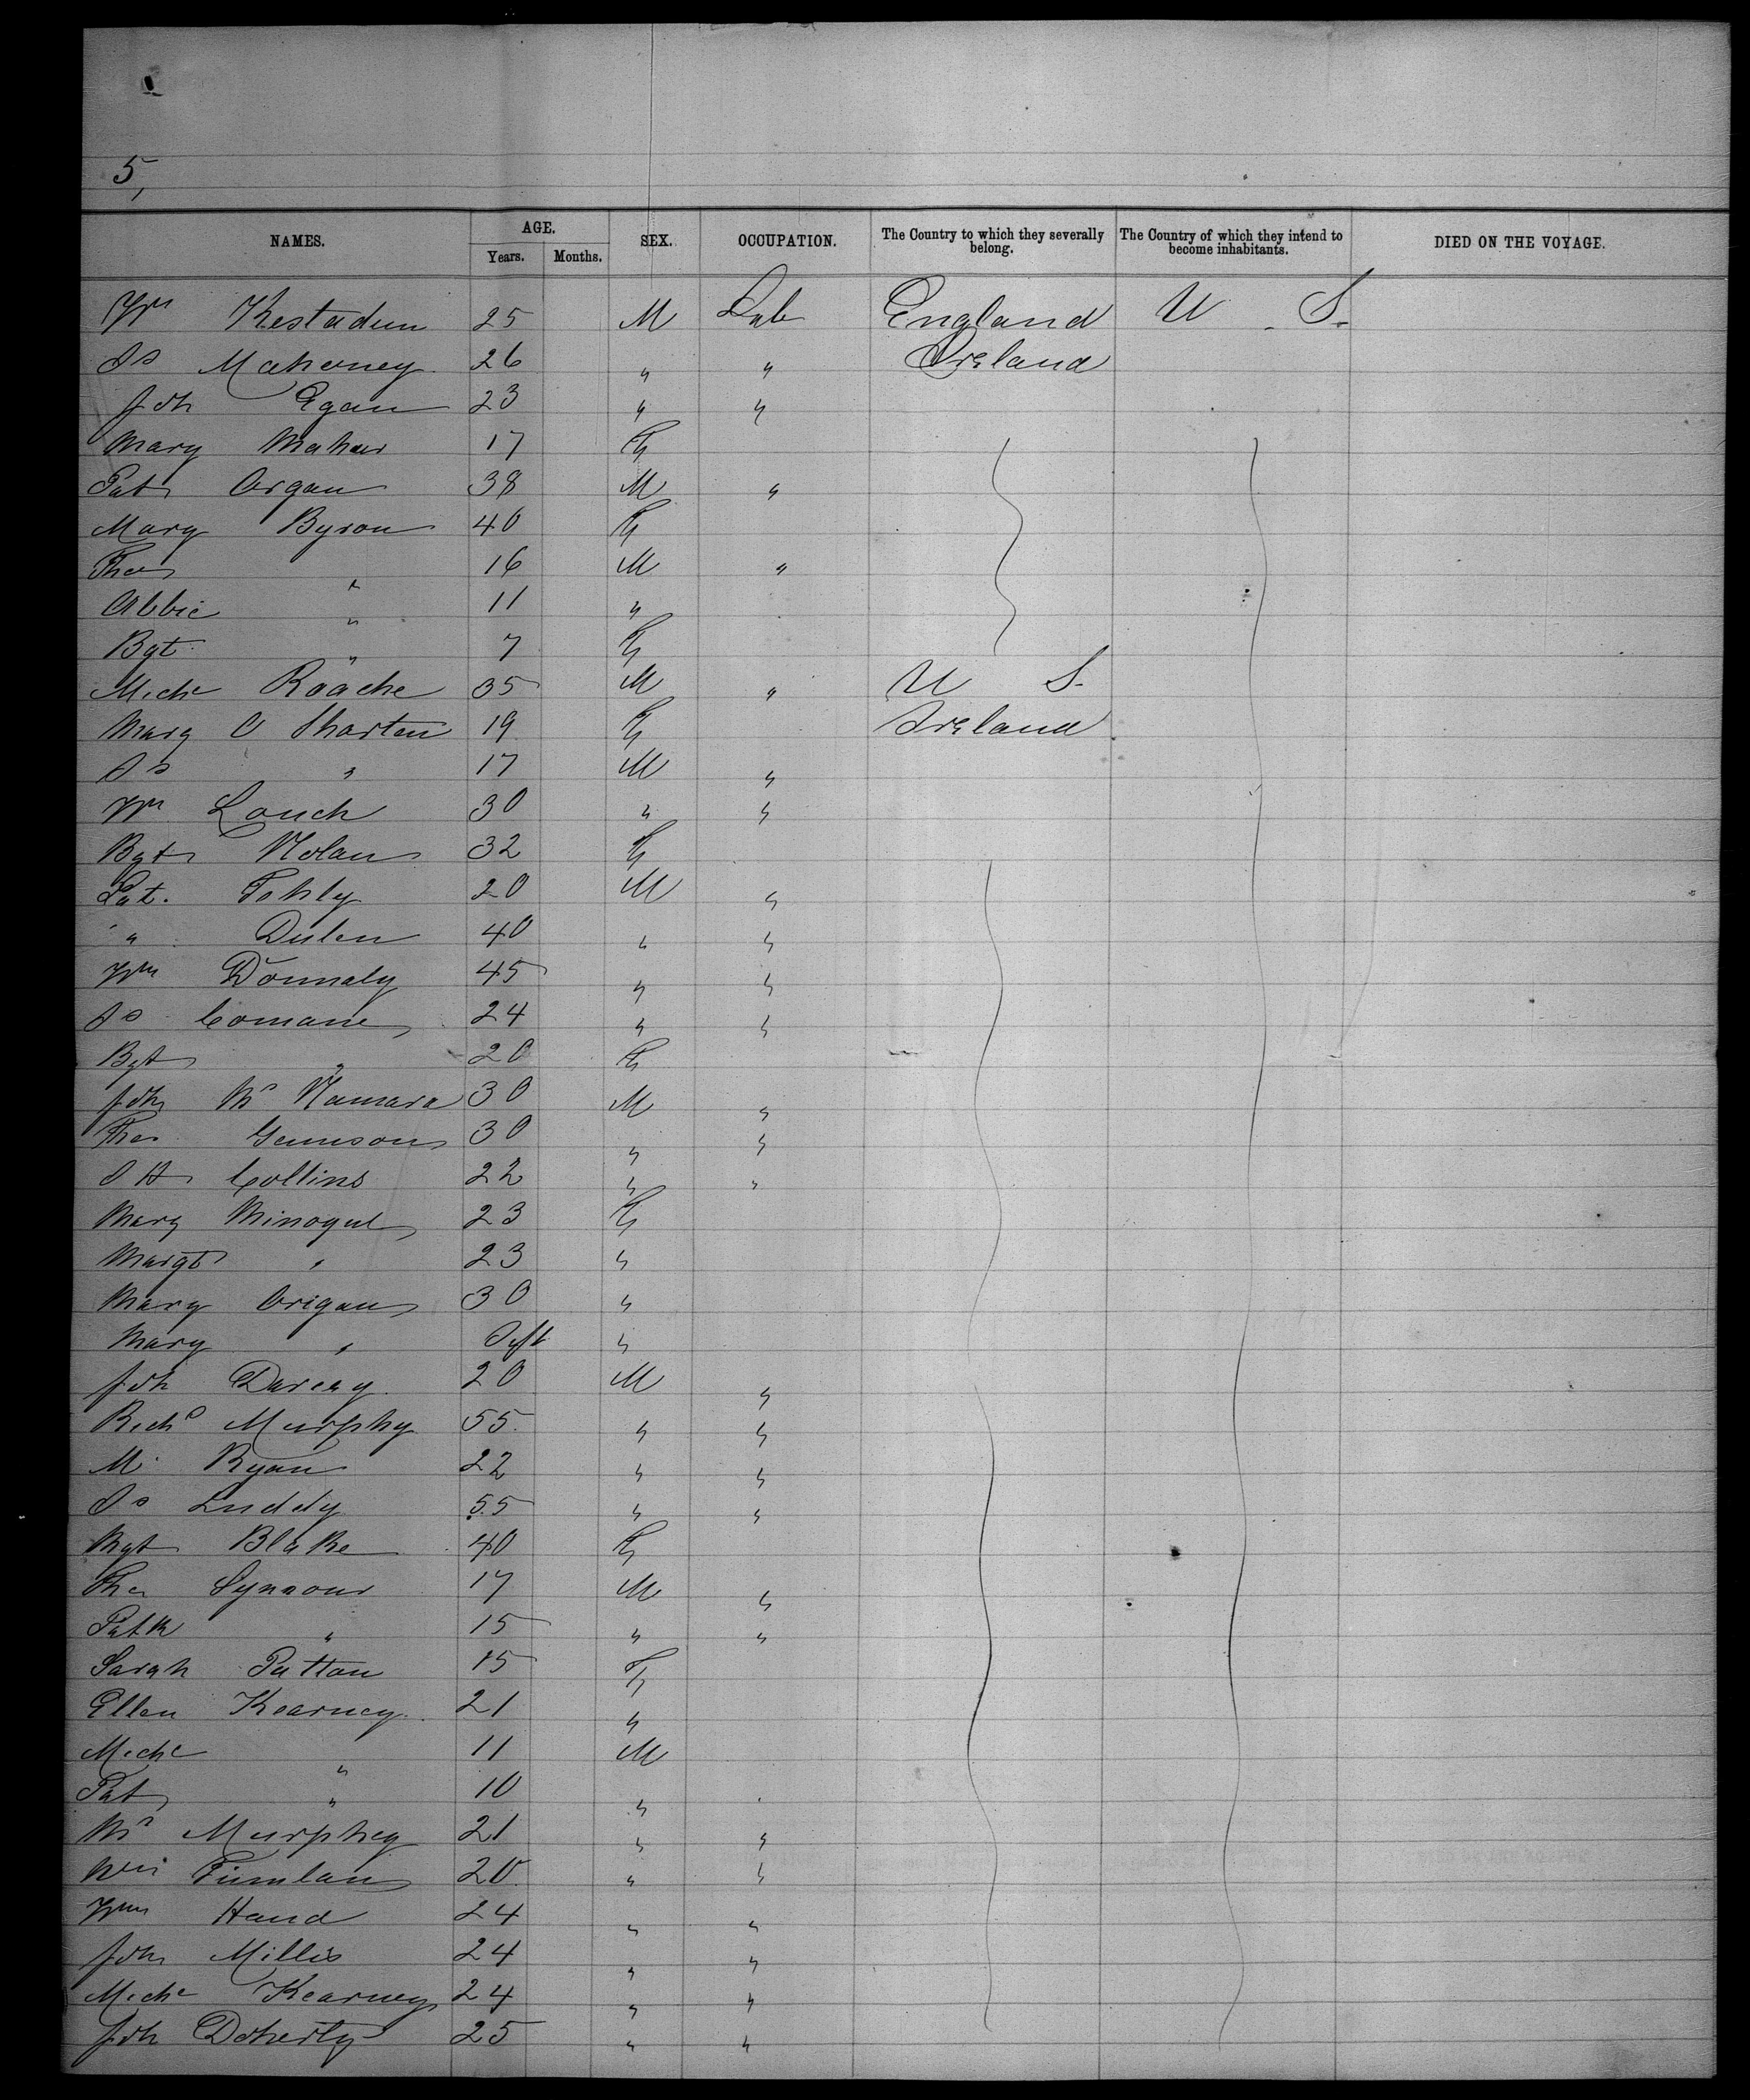 5,
NAMES. AGE. SEX. OCCUPATION. The Country to which they severally belong. The Country of which they intend to become inhabitants. DIED ON THE VOYAGE.
Years. Months.
Wm 25 M Lab England U. S.
Js Mahoney 26 " " Ireland
Joh Egan 23 " "
Mary Mahar 17 F
Pat Organ 38 M "
Mary Byron 40 F
Thos " 16 M "
Abbie " 11 "
Bgt " 7 F
Miche Roache 35 M " U S.
Mary O Sharten 19 F Ireland
Js " 17 M "
Wm Louch 30 " "
Bgt Nolan 32 F
Pat. Fohly 20 M "
" Dulen 40 " "
Wm Donnaly 45 " "
Js Comane 24 " "
Bgt " 20 F
Joh Mc Namara 30 M "
Thos Gennson 30 " "
Collins 22 " "
Mary Minogue 23 F
Margt " 23 "
Mary Origan 30 "
Mary " Inft "
Joh Darcay 20 M "
Richd Murphy 55 " "
M. Ryan 22 " "
Js Luddy 55 " "
Bgt Blake 40 F
Tho Synnour 17 M "
Patk " 15 " "
Sarah Patton 15 F
Ellen Kearney 21 "
Miche " 11 M
Pat " 10 "
Murphey 21 " "
20 " "
Wm Hand 24 " "
Joh Millis 24 " "
Miche Kearney 24 " "
Joh Doherty 25 " "